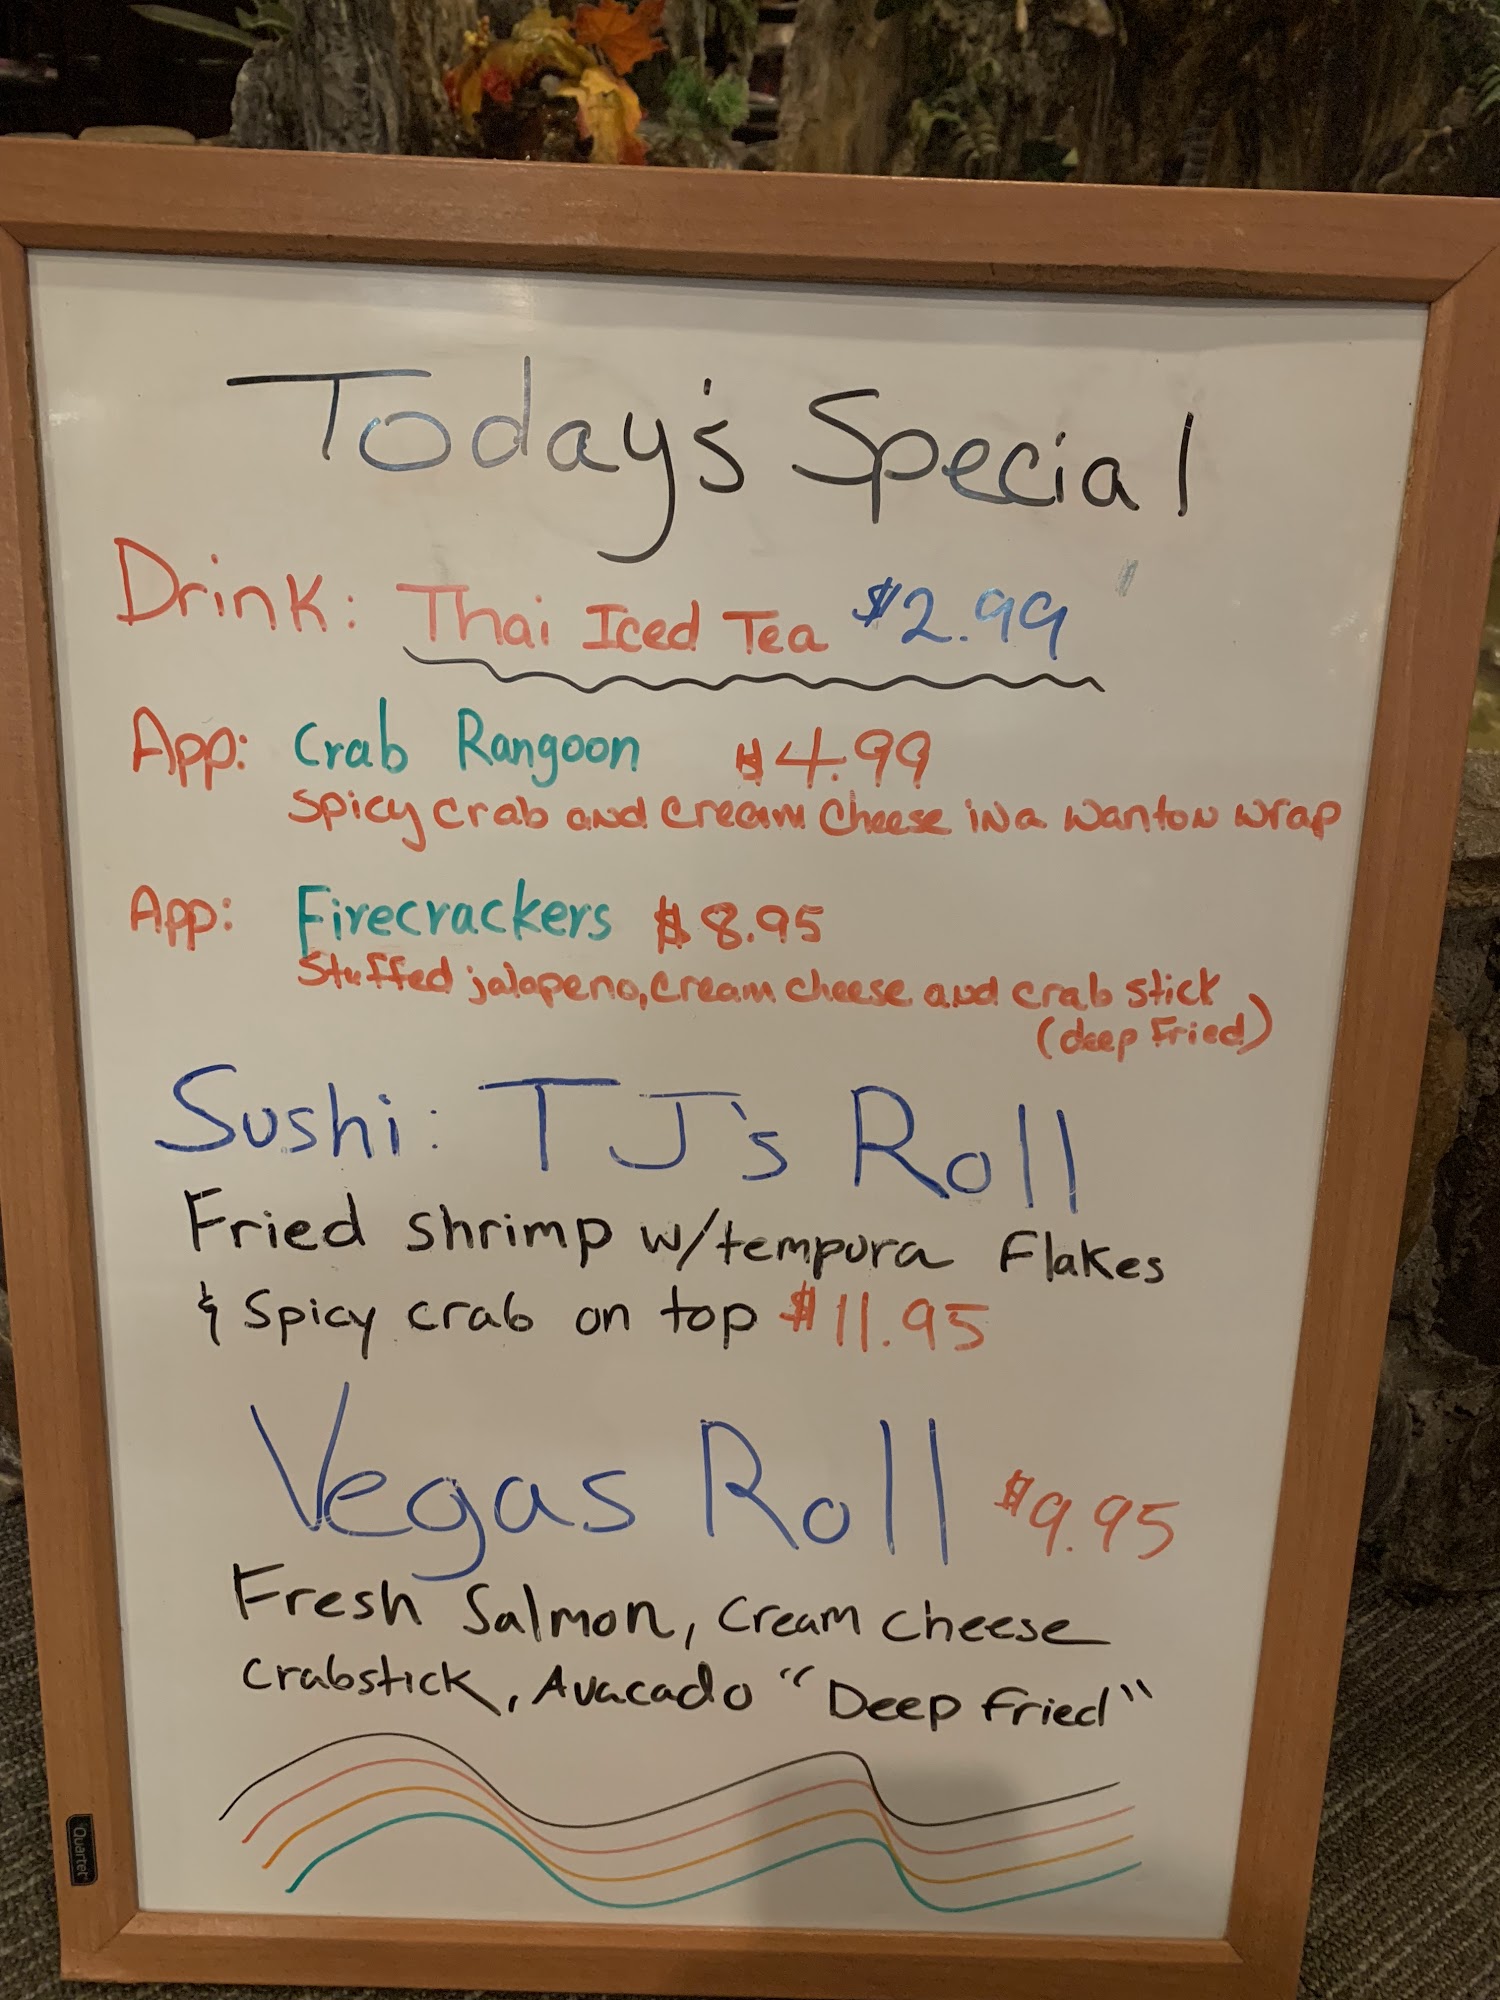 Today's Special
Drink: Thai Iced Tea $2.99
App: Crab Rangoon $4.99
Spicy crab and cream cheese in a wanton wrap
App: Firecrackers $8.95
Stuffed jalapeno, cream cheese and crab stick
(deep fried)
Sushi: TJ's Roll
Fried shrimp w/tempura Flakes
& Spicy crab on top $11.95
Vegas Roll $9.95
Fresh Salmon, cream cheese
crabstick, Avacado "Deep fried"
Quartet